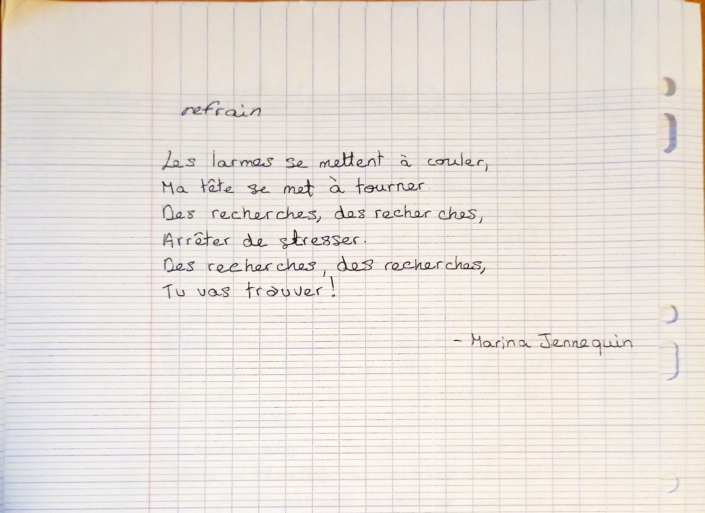 refrain
Les larmes se mettent à couler,
Ma tête se met à tourner
Des recherches, des recherches,
Arrêter de stresser.
Des recherches, des recherches,
Tu vas trouver !
- Marina Jennequin